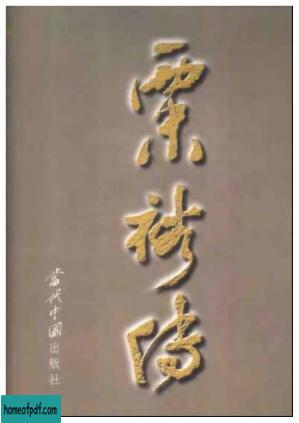 粟裕传
当代中國出版社
homeofpdf.com